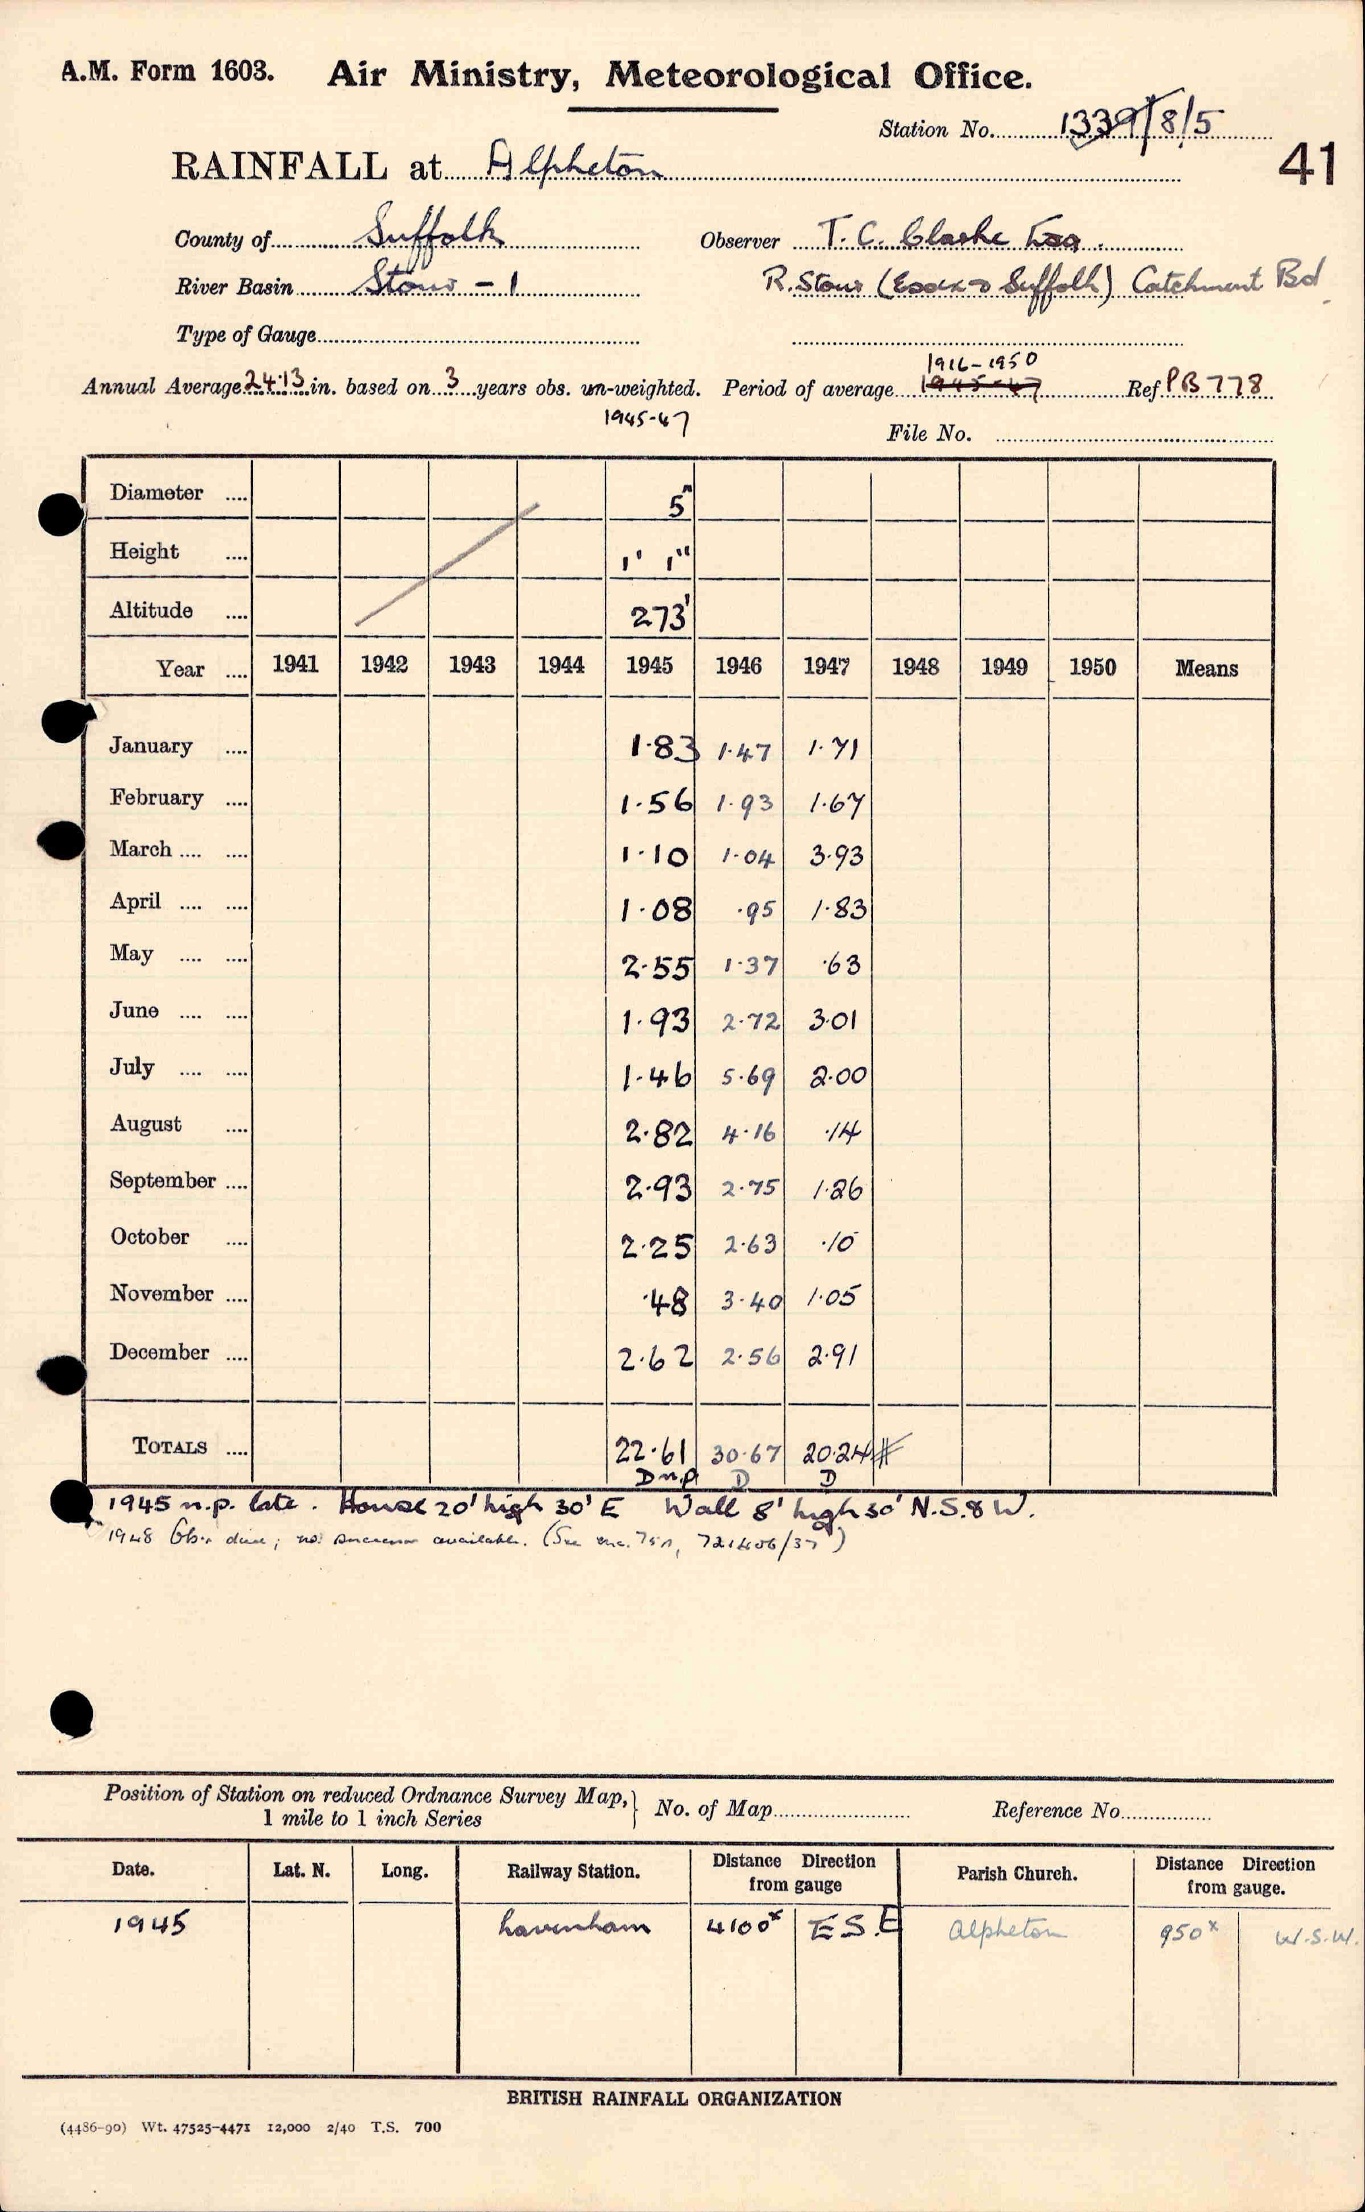 A.M. Form 1603. Air Ministry, Meteorological Office.
Station No. 1339/8/5
41
RAINFALL at Alpheton
County of Suffolk Observer T. C. Clarke Esq.
River Basin Stour - 1 R. Stour (Essex & Suffolk) Catchment Bd.
Type of Gauge
1916-1950
Annual Average 24.13 in. based on 3 years obs. un-weighted. Period of average 1945-47 Ref PB 778
1945-47
File No.
Diameter .... 5"
Height .... 1' 1"
Altitude .... 273'
Year .... 1941 1942 1943 1944 1945 1946 1947 1948 1949 1950 Means
January .... 1.83 1.47 1.71
February .... 1.56 1.93 1.67
March .... .... 1.10 1.04 3.93
April .... .... 1.08 .95 1.83
May .... .... 2.55 1.37 .63
June .... .... 1.93 2.72 3.01
July .... .... 1.46 5.69 2.00
August .... 2.82 4.16 .14
September .... 2.93 2.75 1.26
October .... 2.25 2.63 .10
November .... .48 3.40 1.05
December .... 2.62 2.56 2.91
TOTALS .... 22.61 30.67 20.24 #
D n.p D D
1945 n.p. late. House 20' high 30' E Wall 8' high 30' N.S.& W.
1948 Obsr. died; no successor available. (See enc. 721406/37)
Position of Station on reduced Ordnance Survey Map, 1 mile to 1 inch Series } No. of Map Reference No.
Date. Lat. N. Long. Railway Station. Distance Direction from gauge Parish Church. Distance Direction from gauge.
1945 Lavenham 4100x E S.E Alpheton 950x W.S.W.
BRITISH RAINFALL ORGANIZATION
(4486-90) Wt. 47525-4471 12,000 2/40 T.S. 700